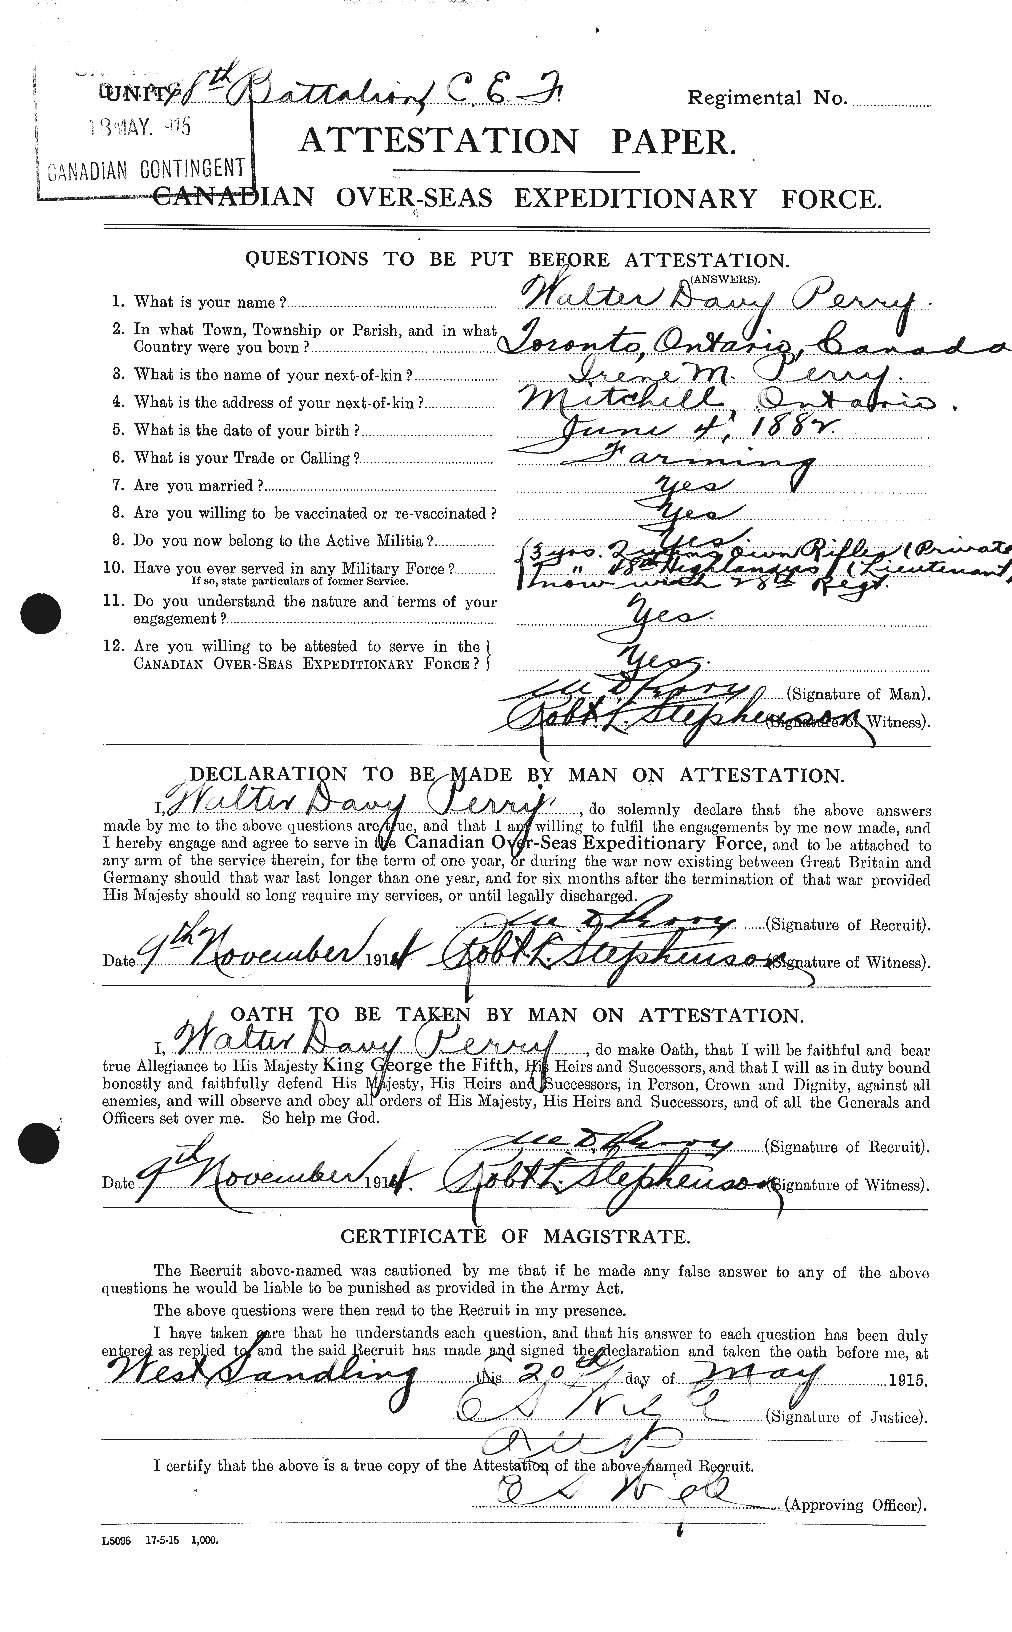 UNIT 18th Battalion, C. E. F.
Regimental No.
18 MAY. 1915
CANADIAN CONTINGENT
ATTESTATION PAPER.
CANADIAN OVER-SEAS EXPEDITIONARY FORCE.
QUESTIONS TO BE PUT BEFORE ATTESTATION.
(ANSWERS).
1. What is your name? Walter Davy Perry.
2. In what Town, Township or Parish, and in what
Country were you born? Toronto, Ontario, Canada
3. What is the name of your next-of-kin? Irene M. Perry.
4. What is the address of your next-of-kin? Mitchell, Ontario.
5. What is the date of your birth? June 4, 1882.
6. What is your Trade or Calling? Farming
7. Are you married? Yes
8. Are you willing to be vaccinated or re-vaccinated? Yes
9. Do you now belong to the Active Militia? Yes
3 yrs. Queens Own Rifles (Private
10. Have you ever served in any Military Force? 1 " 48th Highlanders (Lieutenant)
If so, state particulars of former Service. now with 28th Regt.
11. Do you understand the nature and terms of your
engagement? Yes.
12. Are you willing to be attested to serve in the
CANADIAN OVER-SEAS EXPEDITIONARY FORCE? Yes.
W D Perry (Signature of Man).
Robt L. Stephenson (Signature of Witness).
DECLARATION TO BE MADE BY MAN ON ATTESTATION.
I, Walter Davy Perry, do solemnly declare that the above answers
made by me to the above questions are true, and that I am willing to fulfil the engagements by me now made, and
I hereby engage and agree to serve in the Canadian Over-Seas Expeditionary Force, and to be attached to
any arm of the service therein, for the term of one year, or during the war now existing between Great Britain and
Germany should that war last longer than one year, and for six months after the termination of that war provided
His Majesty should so long require my services, or until legally discharged.
W D Perry (Signature of Recruit).
Date 9th November 1914 Robt L. Stephenson (Signature of Witness).
OATH TO BE TAKEN BY MAN ON ATTESTATION.
I, Walter Davy Perry, do make Oath, that I will be faithful and bear
true Allegiance to His Majesty King George the Fifth, His Heirs and Successors, and that I will as in duty bound
honestly and faithfully defend His Majesty, His Heirs and Successors, in Person, Crown and Dignity, against all
enemies, and will observe and obey all orders of His Majesty, His Heirs and Successors, and of all the Generals and
Officers set over me. So help me God.
W D Perry (Signature of Recruit).
Date 9th November 1914. Robt L. Stephenson (Signature of Witness).
CERTIFICATE OF MAGISTRATE.
The Recruit above-named was cautioned by me that if he made any false answer to any of the above
questions he would be liable to be punished as provided in the Army Act.
The above questions were then read to the Recruit in my presence.
I have taken care that he understands each question, and that his answer to each question has been duly
entered as replied to, and the said Recruit has made and signed the declaration and taken the oath before me, at
West Sandling this 20th day of May 1915.
E S Wigle (Signature of Justice).
I certify that the above is a true copy of the Attestation of the above-named Recruit.
E S Wigle (Approving Officer).
L5096 17-5-15 1,000.